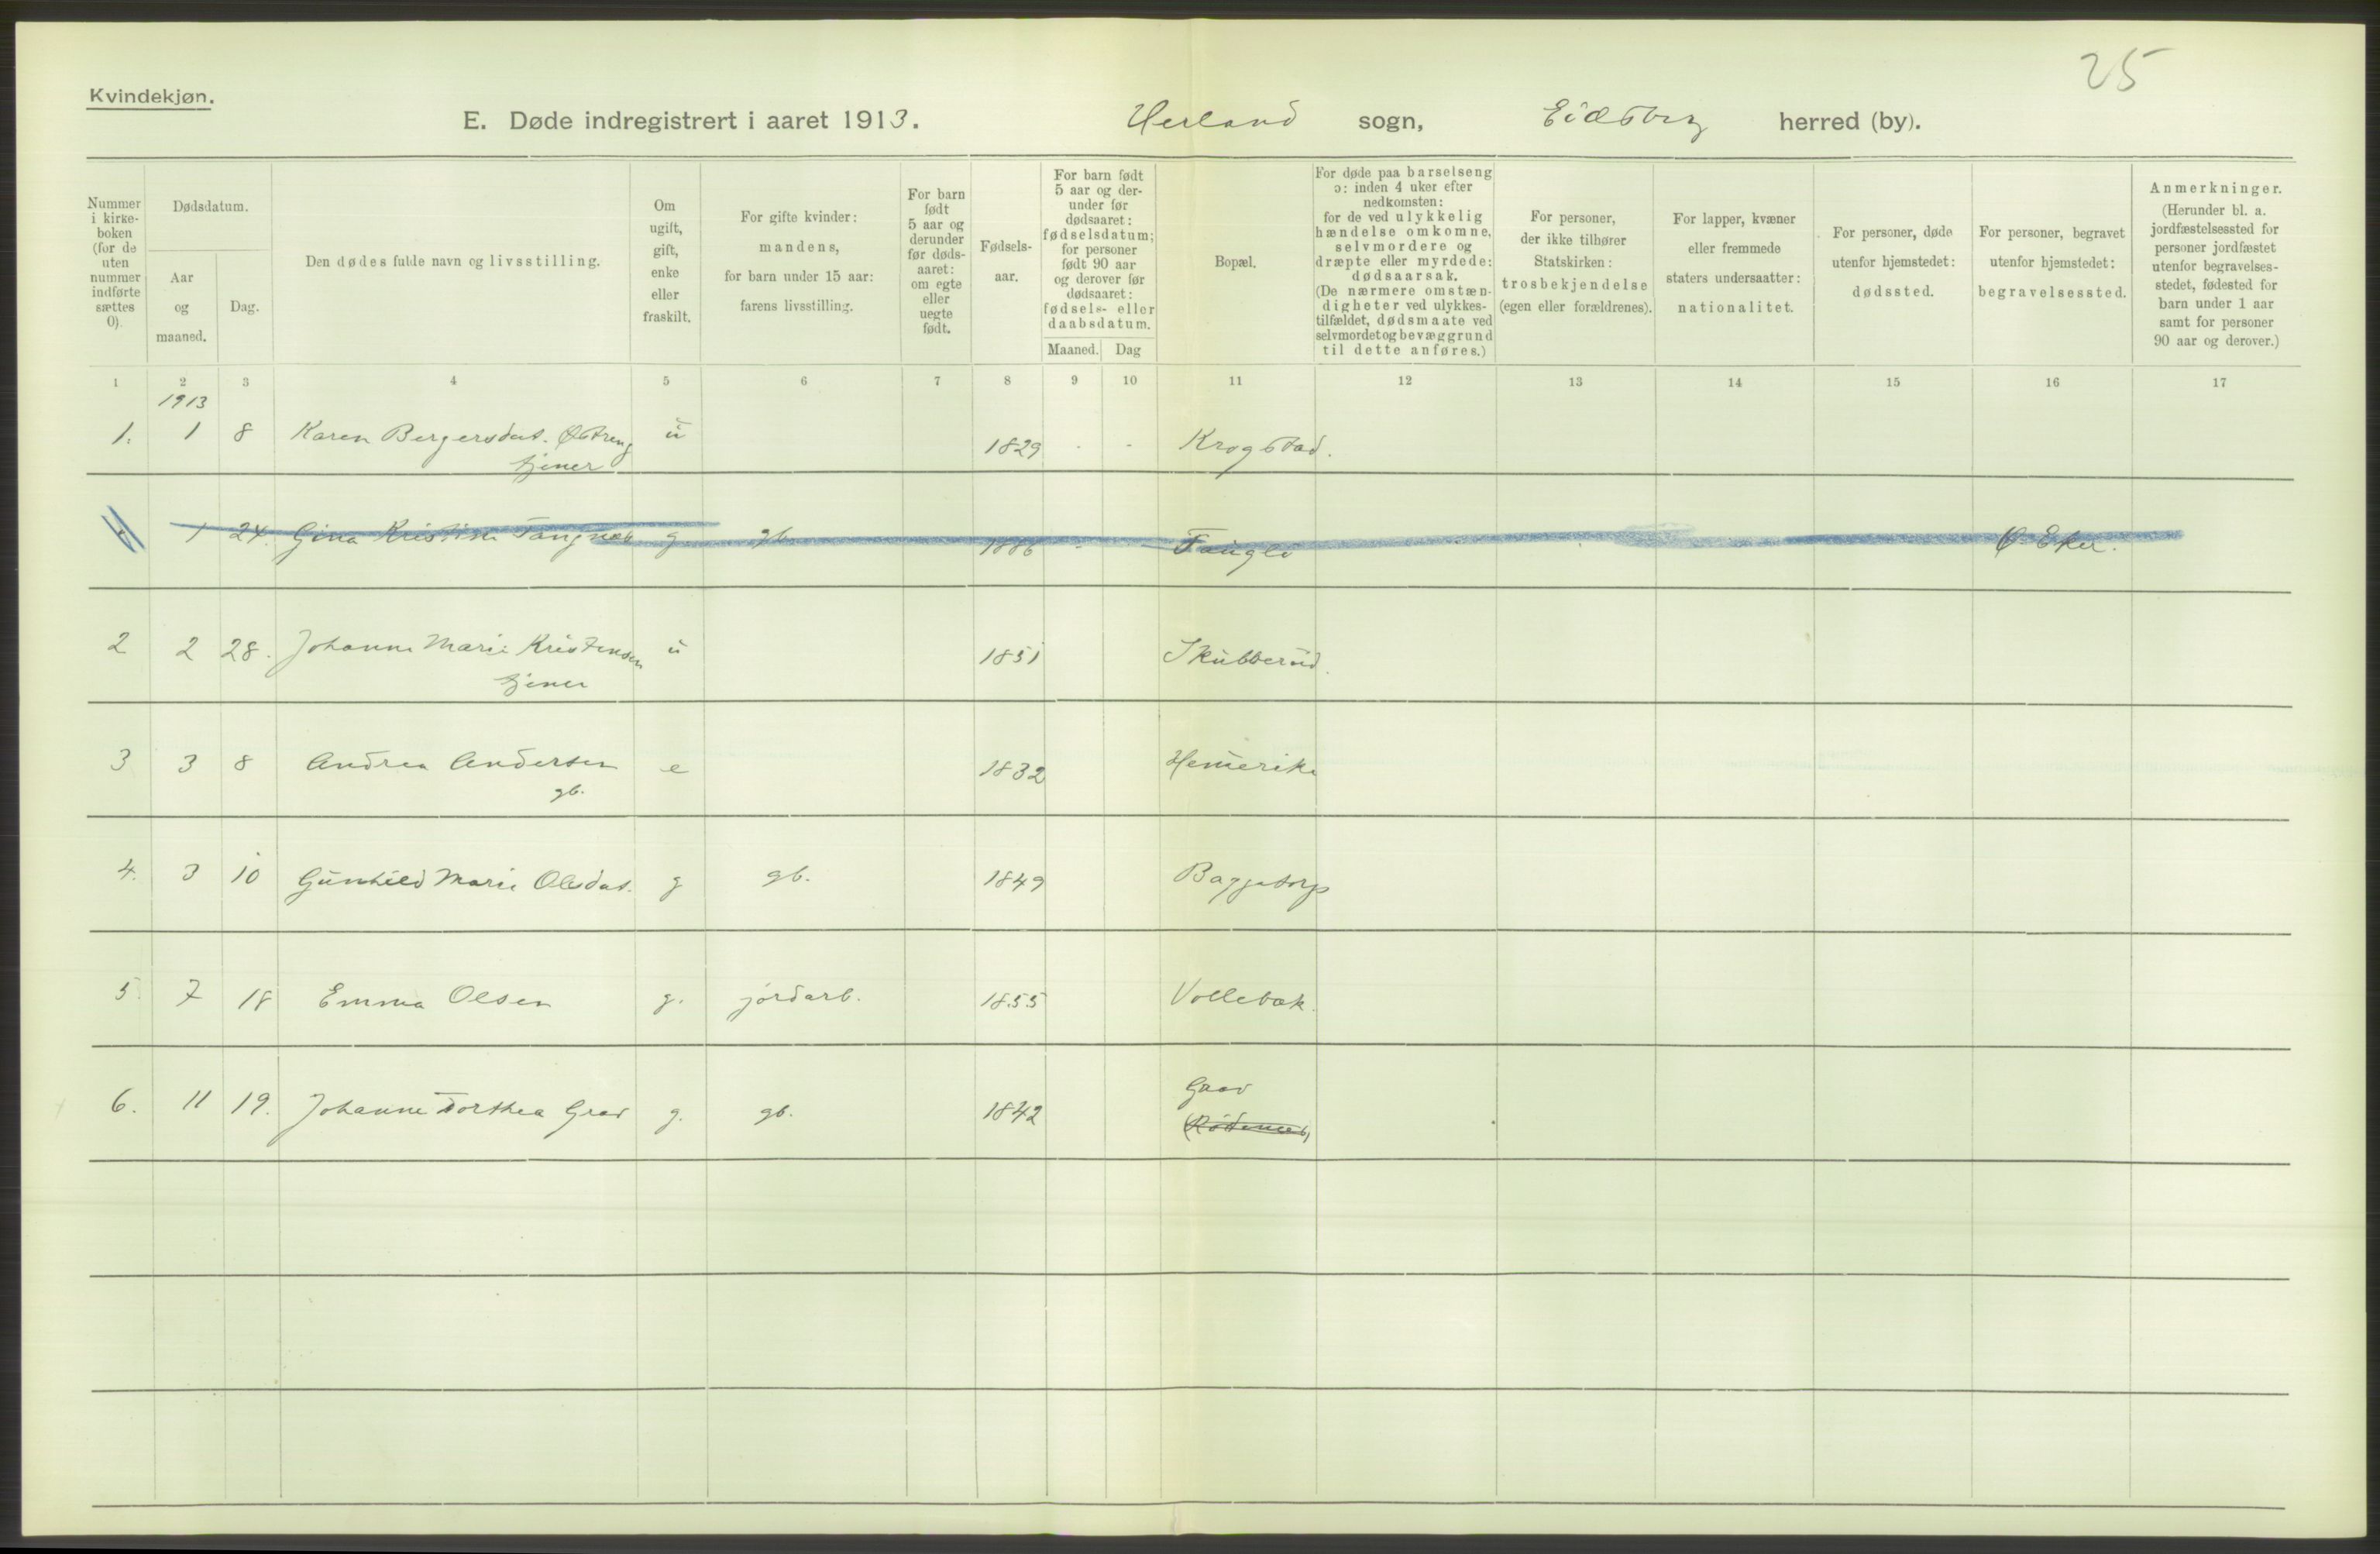 25
Kvindekjøn.
E. Døde indregistrert i aaret 1913. Herland sogn, Eidsberg herred (by).
Nummer i kirke-boken (for de uten nummer indførte sættes 0).
Dødsdatum.
Aar og maaned.
Dag.
Den dødes fulde navn og livsstilling.
Om ugift, gift, enke eller fraskilt.
For gifte kvinder: mandens, for barn under 15 aar: farens livsstilling.
For barn født 5 aar og derunder før døds-aaret: om egte eller uegte født.
Fødsels-aar.
For barn født 5 aar og der-under før dødsaaret: fødselsdatum; for personer født 90 aar og derover før dødsaaret: fødsels- eller daabsdatum.
Maaned. Dag
Bopæl.
For døde paa barselseng ɔ: inden 4 uker efter nedkomsten: for de ved ulykkelig hændelse omkomne, selvmordere og dræpte eller myrdede: dødsaarsak. (De nærmere omstæn-digheter ved ulykkes-tilfældet, dødsmaate ved selvmordet og bevæggrund til dette anføres.)
For personer, der ikke tilhører Statskirken: trosbekjendelse (egen eller forældrenes).
For lapper, kvæner eller fremmede staters undersaatter: nationalitet.
For personer, døde utenfor hjemstedet: dødssted.
For personer, begravet utenfor hjemstedet: begravelsessted.
Anmerkninger. (Herunder bl. a. jordfæstelsessted for personer jordfæstet utenfor begravelses-stedet, fødested for barn under 1 aar samt for personer 90 aar og derover.)
1 2 3 4 5 6 7 8 9 10 11 12 13 14 15 16 17
1913
1. 1 8 Karen Bergersdat. Østreng u 1829 - - Krogstad.
tjener
1 24. Gina Kristine Tangnæs g gb. 1886 - - Ø. Eker.
2 2 28. Johanne Marie Kristensen u 1851 Skubberud.
tjener
3 3 8 Andrea Andersen e 1832 Hemerike
gb.
4. 3 10 Gunhild Marie Olsdat. g gb. 1849 Baggetorp
5. 7 18 Emma Olsen g. jordarb. 1855 Vollebæk.
6. 11 19. Johanne Dorthea Grav g. gb. 1842 Grav
(Rødenæs)